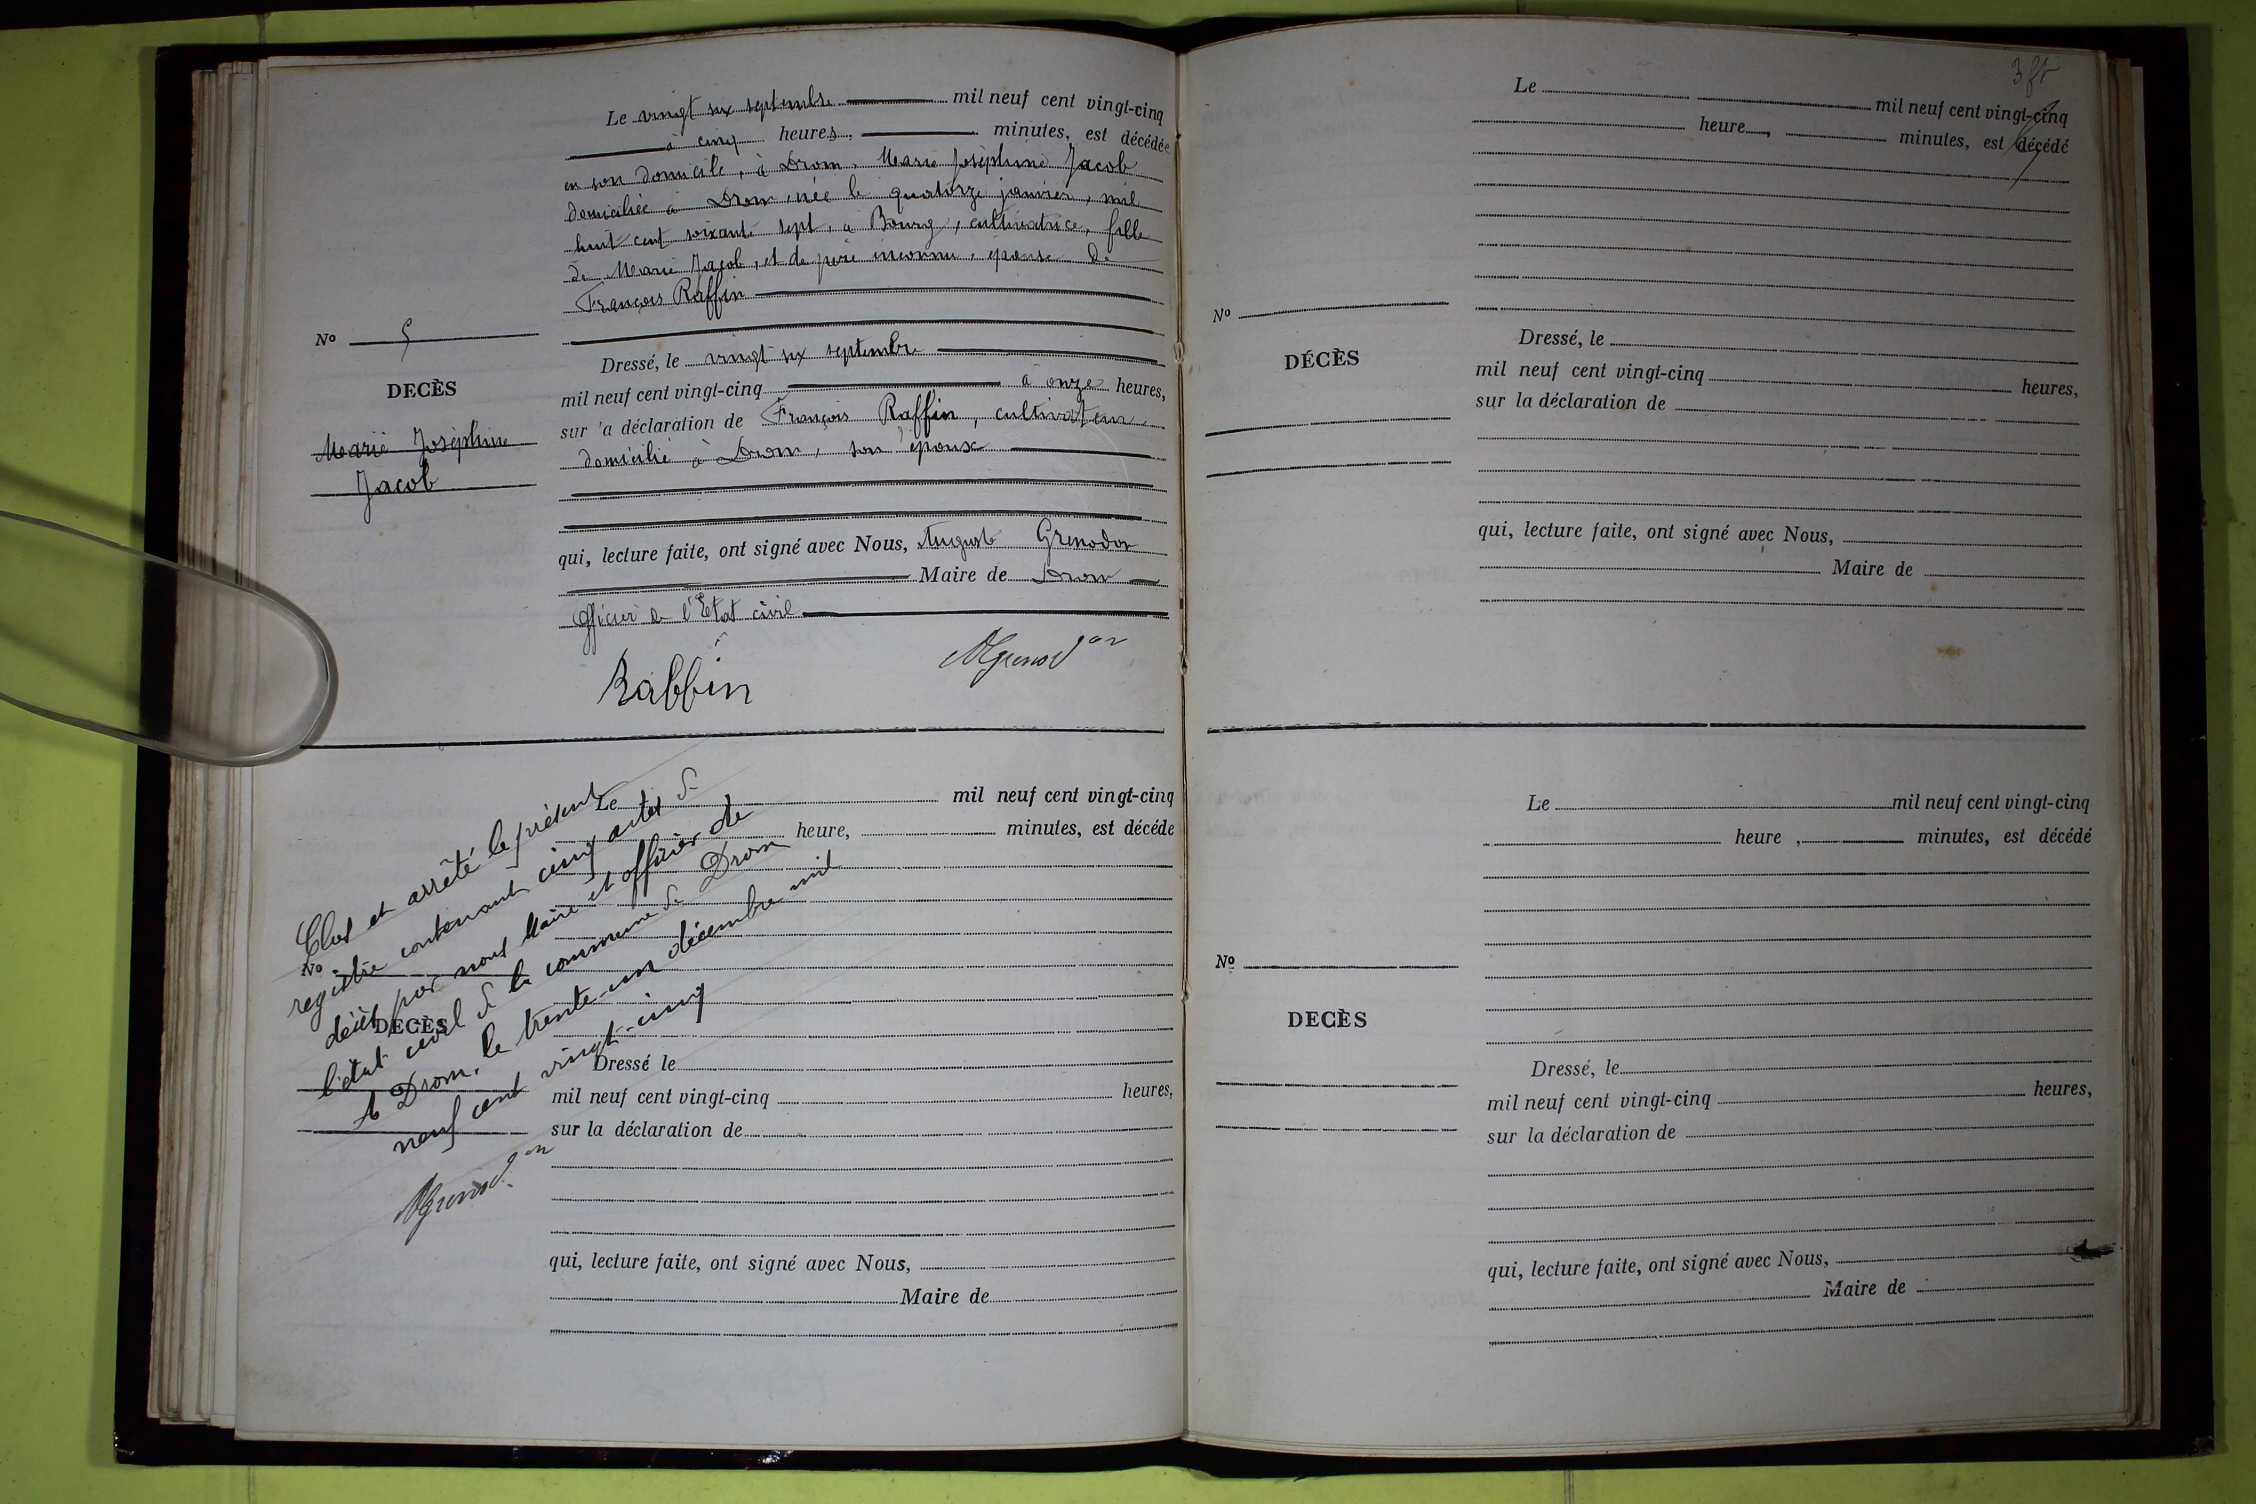 Le vingt six septembre mil neuf cent vingt-cinq
à cinq heures, minutes, est décédée
en son domicile, à Drom, Marie Joséphine Jacob
domiciliée à Drom, née le quatorze janvier, mil
huit cent soixante sept, à Bourg, cultivatrice, fille
de Marie Jacob, et de père inconnu, épouse de
François Raffin
No 5
DECÈS
Marie Joséphine
Jacob
Dressé, le vingt six septembre
mil neuf cent vingt-cinq à onze heures,
sur 'a déclaration de François Raffin, cultivateur
domicilié à Drom, son époux
qui, lecture faite, ont signé avec Nous, Auguste Grenodon
Maire de Drom
Officier de l'État civil
Raffin
Le mil neuf cent vingt-cinq
heure, minutes, est décéde
No
DECÈS
Clos et arrêté le présent
registre contenant cinq actes de
décès par nous Maire et officier de
l'état civil de la commune de Drom
A Drom, le trente-un décembre mil
neuf cent vingt-cinq
Dressé le
mil neuf cent vingt-cinq heures,
sur la déclaration de
qui, lecture faite, ont signé avec Nous,
Maire de
Le mil neuf cent vingt-cinq
heure , minutes, est décédé
No
DÉCÈS
Dressé, le
mil neuf cent vingt-cinq heures,
sur la déclaration de
qui, lecture faite, ont signé avec Nous,
Maire de
Le mil neuf cent vingt-cinq
heure , minutes, est décédé
No
DECÈS
Dressé, le
mil neuf cent vingt-cinq heures,
sur la déclaration de
qui, lecture faite, ont signé avec Nous,
Maire de